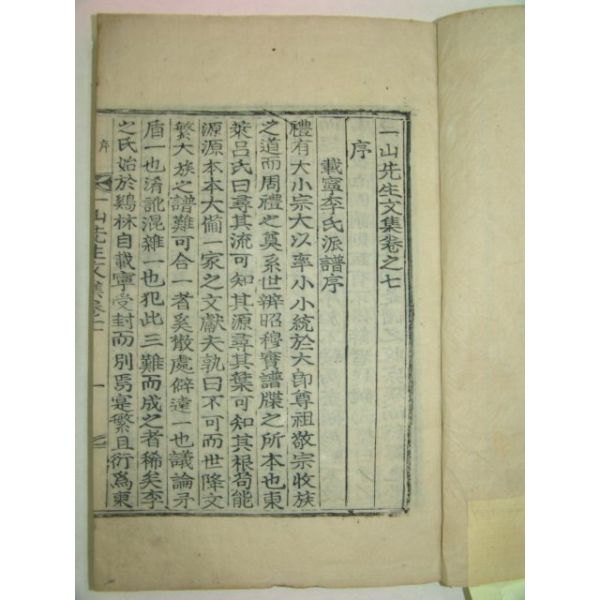 一山先生文集卷之七
序
載寧李氏派譜序
禮有大小宗大以率小小統於大卽尊祖敬宗收族
之道而周禮之奠系世辨昭穆實譜牒之所本也東
萊呂氏曰尋其流可知其源尋其葉可知其根苟能
源源本本大備一家之文獻夫孰曰不可而世降文
繁大族之譜難可合一者奚散處僻遠一也議論矛
盾一也淆訛混雜一也犯此三難而成之者稀矣李
之氏始於鷄林自載寧受封而別焉寔繁且衍爲東
序 一山先生文集卷 一